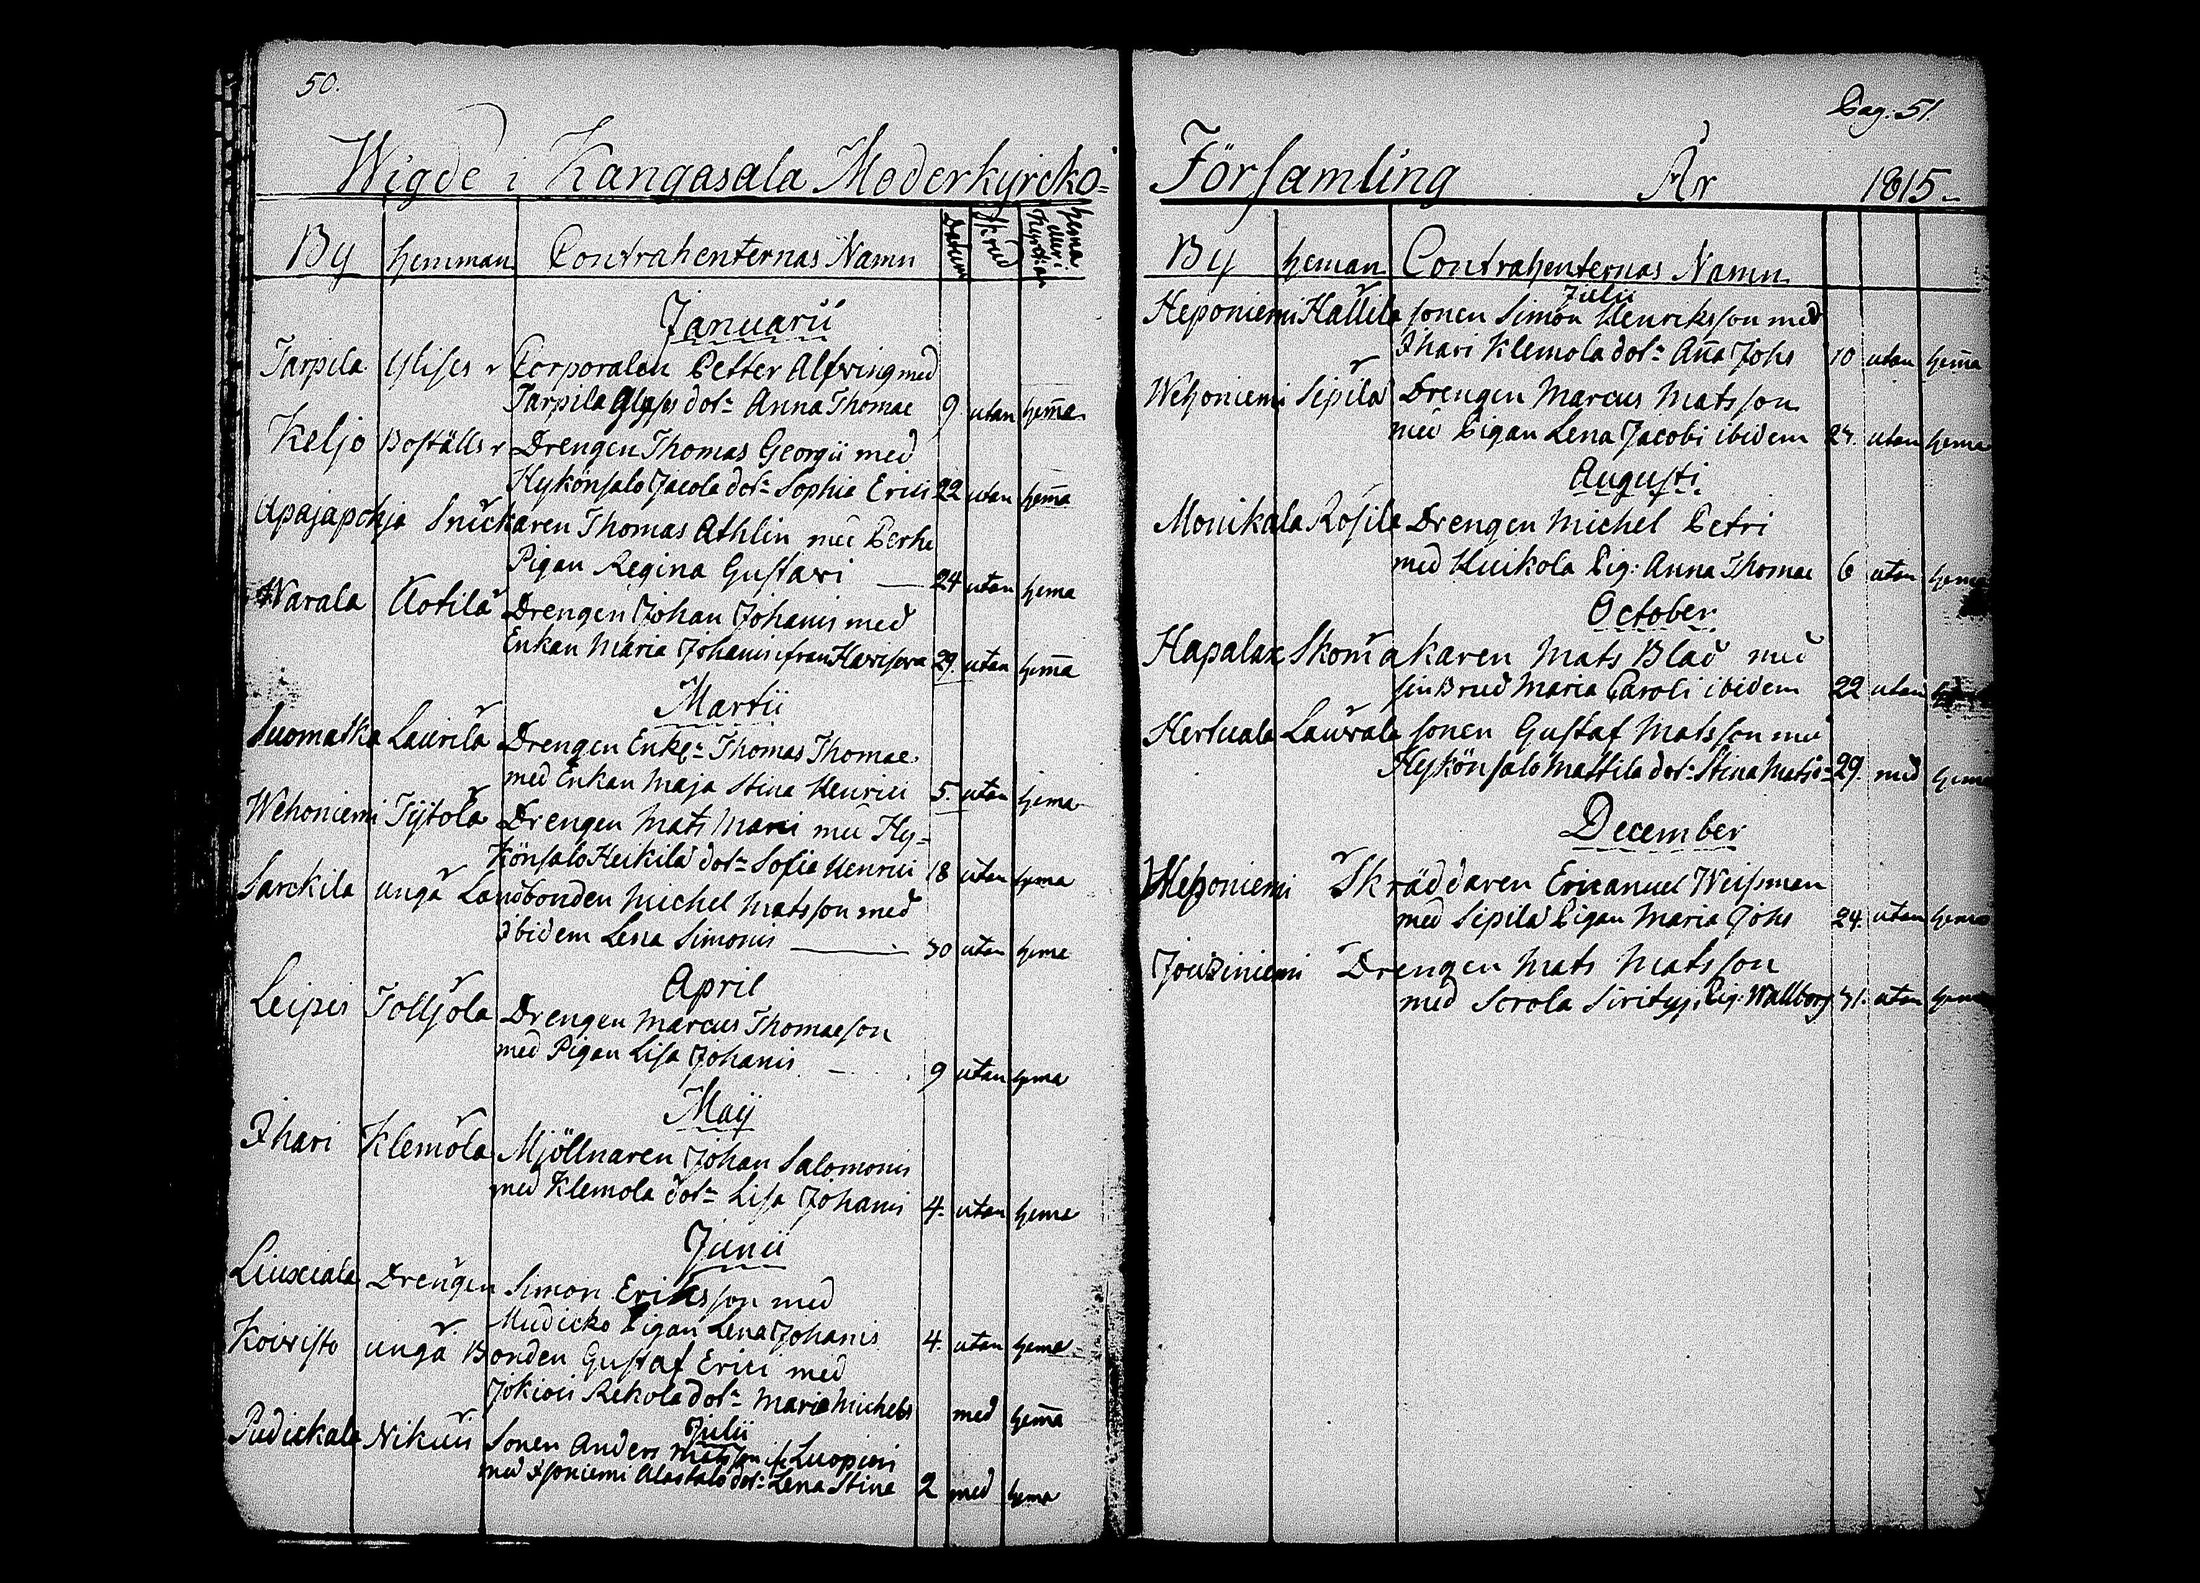 50.
Wigde i Kangasala Moderkyrcko=
By hemman Contrahenternas Namn Datum Skrud hema eller i Kyrckan
Januarii
Tarpila Ylises r Corporalen Petter Alfving med
Tarpila Ylyses dotr Anna Thomae 9 utan hema
Keljo Boställs r Drengen Thomas Georgii med
Hykönsalo Jacola dotr Sophia Erici 22 utan hema
Apajapohja Snickaren Thomas Athlin med Perhe
Pigan Regina Gustavi 24 utan hema
Warala Aotila Drengen Johan Johanis med
Enkan Maria Johanis ifran 29. utan hema
Martii
Suomatka Laurila Drengen Enkl: Thomas Thomae
med Enkan Maja Stina Henrici 5. utan hema
Wehoniemi Tÿtola Drengen Mats Marci med Hy=
könsalo Heikilä dotr Sofia Henrici 18 utan hema
Sarckila unga Landbonden Michel Matsson med
Ibidem Lena Simonis 30 utan hema
April
Leipis Tolljola Drengen Marcus Thomaeson
med Pigan Lisa Johanis 9 utan hema
Maij
Ihari Klemola Mjöllnaren Johan Salomonis
med Klemola dotr Lisa Johanis 4. utan hema
Junii
Liuxiala Drengen Simon Eriksson med
Mudicko Pigan Lena Johanis 4. utan hema
Koivisto unga Bonden Gustaf Erici med
Jokiois Rekola dotr Maria Michels med hema
Julii
Pudickala Nikuis Sonen Anders Matsson if. Luopiois
med Isoniemi Alastalo dotr Lena Stina 2 med hema
Pag: 51.
Församling År 1815.
By heman Contrahenternas Namn
Julii
Heponiemi Hallila sonen Simon Henriksson med
Ihari Klemola dotr Aña Johs 10 utan hema
Wehoniemi Sipila Drengen Marcus Matsson
med Pigan Lena Jacobi ibidem 27. utan hema
Augusti
Monikala Rosila Drengen Michel Petri
med Huikola Pig: Anna Thomae 6 utan hema
October
Hapalax Skomakaren Mats Blad med
sin Brud Maria Caroli ibidem 22 utan
Hertuala Laurala sonen Gustaf Matsson med
Hykönsalo Mattila dotr Stina Matsd: 29. med hema
December
Heponiemi Skräddaren Emanuel Weisman
med Sipila Pigan Maria Johs 24. utan hema
Jouziniemi Drengen Mats Matsson
med Sorola Pig: Wallborg 31. utan hema